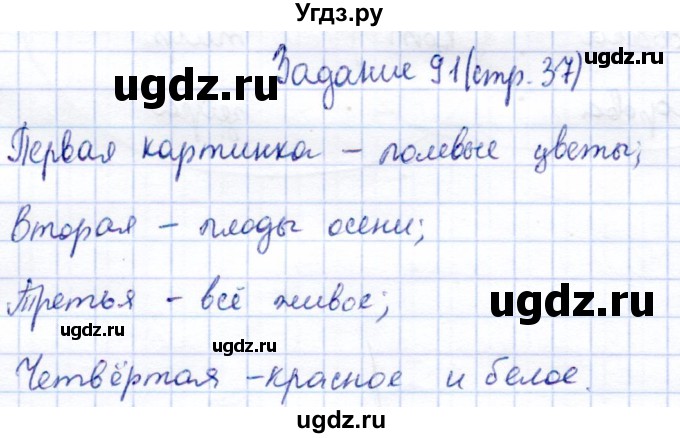 Угдз.ру
Задание 91(стр. 37)
ugdz.ru
ugdz.ru
Первая картинка – полевые цветы;
Вторая – плоды осени;
Третья – всё живое;
ugdz.ru
ugdz.ru
ugdz.ru
Четвёртая – красное и белое.
ugdz.ru